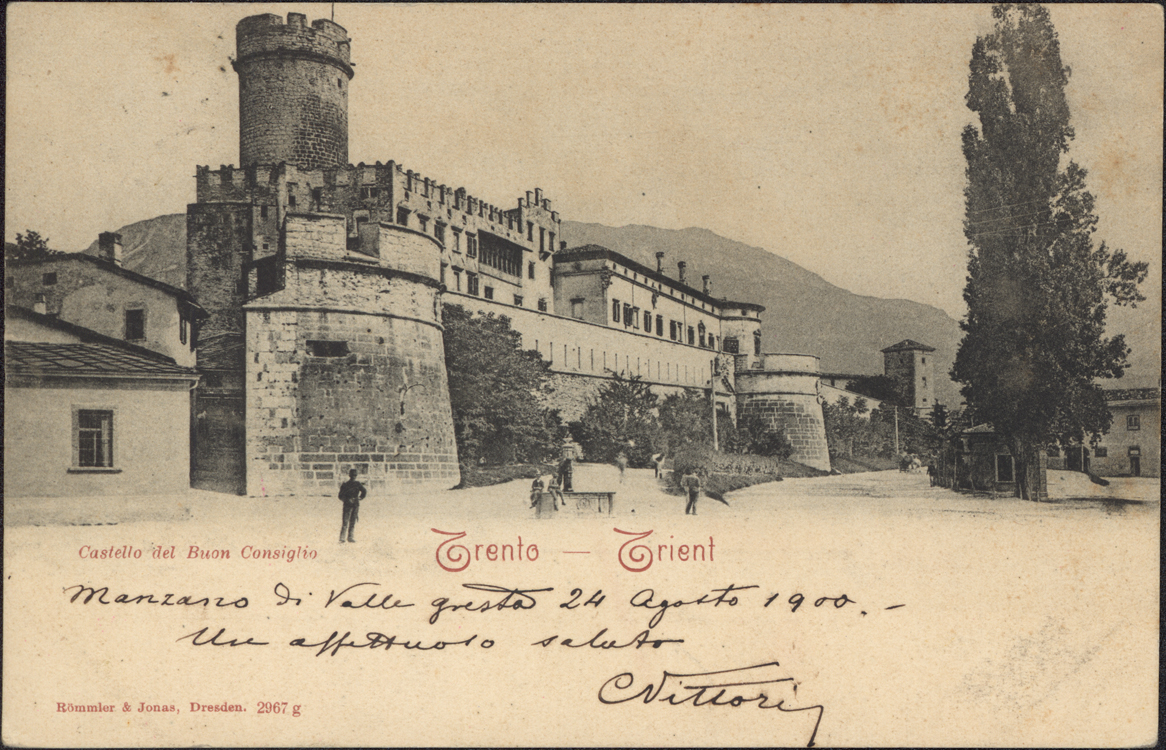 Castello del Buon Consiglio
Trento — Trient
Manzano di Valle gresta 24 Agosto 1900. -
Un affettuoso saluto
CVittori
Römmler & Jonas, Dresden. 2967 g